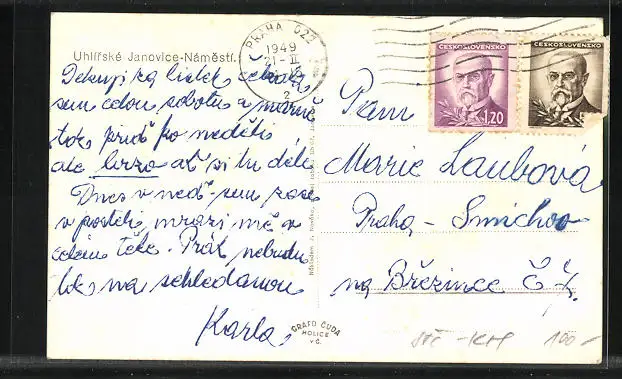 Uhlířské Janovice-Náměstí.
PRAHA 022
1949
21-II
2
ČESKOSLOVENSKO
1,20
ČESKOSLOVENSKO
Děkuji za lístek, čekala
sem celou sobotu a marně
tak přiď po neděli
ale brzo ať si tu déle
Dnes v neď sem zase
v posteli, mrazí mě a
celém těle. Psát nebudu
tak na schledanou
Karla
Paní
Marie Laubová
Praha - Smíchov
na Březince Č 7.
GRAFO ČUDA
HOLICE
V Č.
StČ - KH 100-